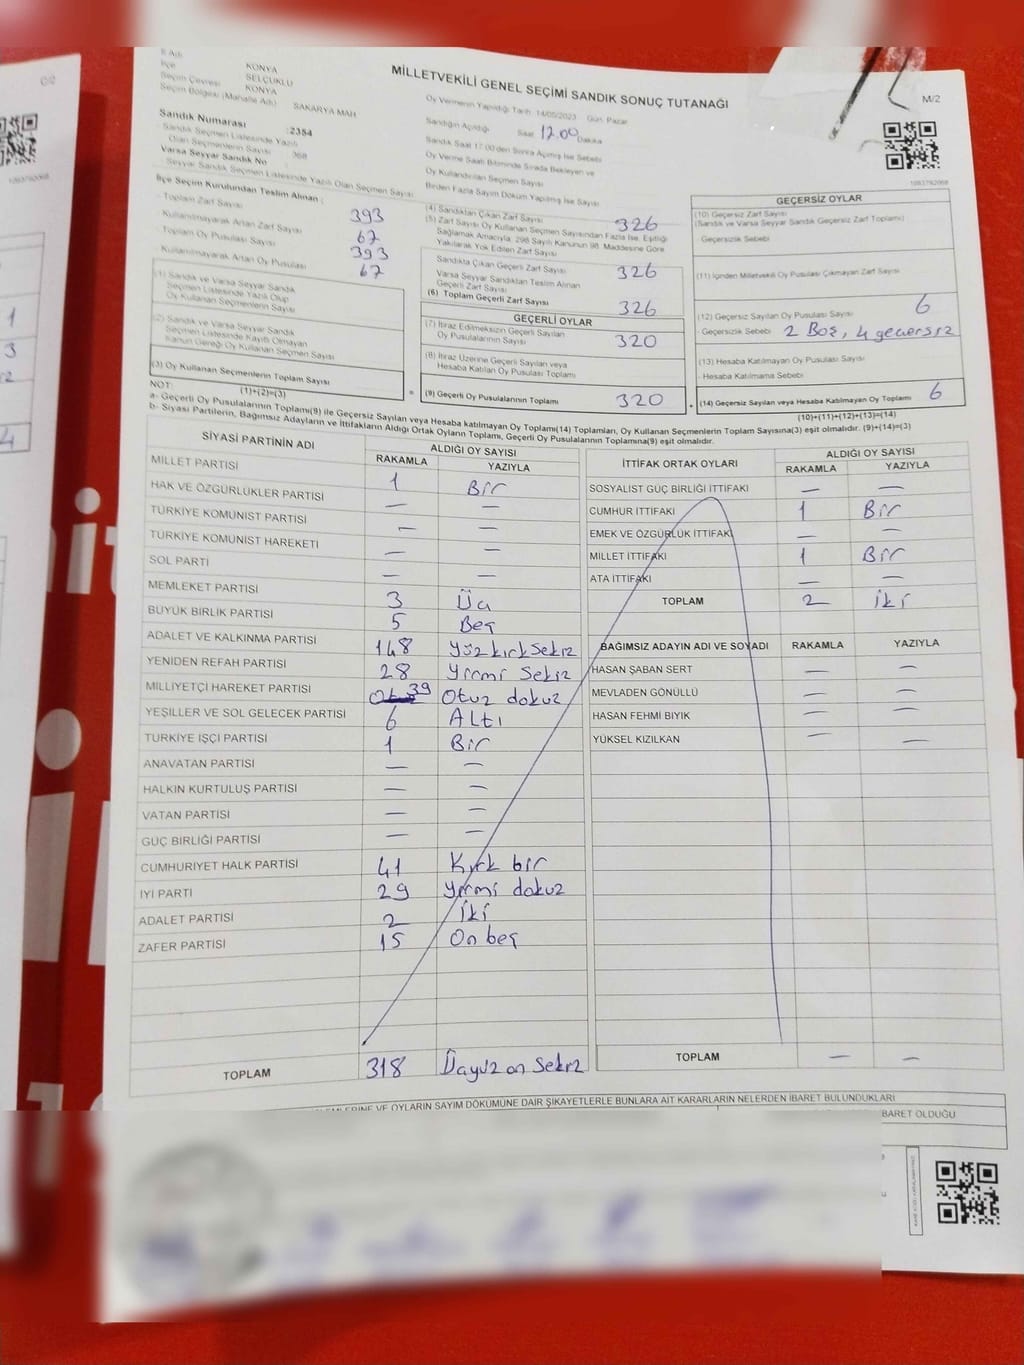 İl Adı
İlçe KONYA
Seçim Çevresi SELÇUKLU
Seçim Bölgesi (Mahalle Adı) KONYA
SAKARYA MAH
Sandık Numarası : 2354
Sandık Seçmen Listesinde Yazılı
Olan Seçmenlerin Sayısı : 368
Varsa Seyyar Sandık No
Seyyar Sandık Seçmen Listesinde Yazılı Olan Seçmen Sayısı
MİLLETVEKİLİ GENEL SEÇİMİ SANDIK SONUÇ TUTANAĞI
M/2
Oy Vermenin Yapıldığı Tarih 14/05/2023 Gün Pazar
Sandığın Açıldığı Saat 17.00 Dakika
Sandık Saat 17:00'den Sonra Açılmış İse Sebebi
Oy Verme Saati Bitiminde Sırada Bekleyen ve
Oy Kullandırılan Seçmen Sayısı
Birden Fazla Sayım Döküm Yapılmış İse Sayısı
1083792068
İlçe Seçim Kurulundan Teslim Alınan :
Toplam Zarf Sayısı 393
Kullanılmayarak Artan Zarf Sayısı 67
Toplam Oy Pusulası Sayısı 393
Kullanılmayarak Artan Oy Pusulası 67
(1) Sandık ve Varsa Seyyar Sandık
Seçmen Listesinde Yazılı Olup
Oy Kullanan Seçmenlerin Sayısı
(2) Sandık ve Varsa Seyyar Sandık
Seçmen Listesinde Kayıtlı Olmayan
Kanun Gereği Oy Kullanan Seçmen Sayısı
(3) Oy Kullanan Seçmenlerin Toplam Sayısı
(1)+(2)=(3)
(4) Sandıktan Çıkan Zarf Sayısı 326
(5) Zarf Sayısı Oy Kullanan Seçmen Sayısından Fazla İse, Eşitliği
Sağlamak Amacıyla, 298 Sayılı Kanunun 98. Maddesine Göre
Yakılarak Yok Edilen Zarf Sayısı
Sandıkta Çıkan Geçerli Zarf Sayısı 326
Varsa Seyyar Sandıktan Teslim Alınan
Geçerli Zarf Sayısı
(6) Toplam Geçerli Zarf Sayısı 326
GEÇERLİ OYLAR
(7) İtiraz Edilmeksizin Geçerli Sayılan
Oy Pusulalarının Sayısı 320
(8) İtiraz Üzerine Geçerli Sayılan veya
Hesaba Katılan Oy Pusulaları Toplamı
(9) Geçerli Oy Pusulalarının Toplamı 320
GEÇERSİZ OYLAR
(10) Geçersiz Zarf Sayısı
(Sandık ve Varsa Seyyar Sandık Geçersiz Zarf Toplamı)
Geçersizlik Sebebi
(11) İçinden Milletvekili Oy Pusulası Çıkmayan Zarf Sayısı
(12) Geçersiz Sayılan Oy Pusulası Sayısı 6
Geçersizlik Sebebi 2 Boş, 4 gecersiz
(13) Hesaba Katılmayan Oy Pusulası Sayısı
- Hesaba Katılmama Sebebi
(14) Geçersiz Sayılan veya Hesaba Katılmayan Oy Toplamı 6
(10)+(11)+(12)+(13)=(14)
NOT:
a- Geçerli Oy Pusulalarının Toplamı(9) ile Geçersiz Sayılan veya Hesaba katılmayan Oy Toplamı(14) Toplamları, Oy Kullanan Seçmenlerin Toplam Sayısına(3) eşit olmalıdır. (9)+(14)=(3)
b- Siyasi Partilerin, Bağımsız Adayların ve İttifakların Aldığı Ortak Oyların Toplamı, Geçerli Oy Pusulalarının Toplamına(9) eşit olmalıdır.
SİYASİ PARTİNİN ADI ALDIĞI OY SAYISI
RAKAMLA YAZIYLA
MİLLET PARTİSİ 1 Bir
HAK VE ÖZGÜRLÜKLER PARTİSİ — —
TÜRKİYE KOMÜNİST PARTİSİ — —
TÜRKİYE KOMÜNİST HAREKETİ — —
SOL PARTİ — —
MEMLEKET PARTİSİ 3 Üç
BÜYÜK BİRLİK PARTİSİ 5 Beş
ADALET VE KALKINMA PARTİSİ 148 Yüz kırk sekiz
YENİDEN REFAH PARTİSİ 28 Yirmi sekiz
MİLLİYETÇİ HAREKET PARTİSİ 39 Otuz dokuz
YEŞİLLER VE SOL GELECEK PARTİSİ 6 Altı
TÜRKİYE İŞÇİ PARTİSİ 1 Bir
ANAVATAN PARTİSİ — —
HALKIN KURTULUŞ PARTİSİ — —
VATAN PARTİSİ — —
GÜÇ BİRLİĞİ PARTİSİ — —
CUMHURİYET HALK PARTİSİ 41 Kırk bir
İYİ PARTİ 29 Yirmi dokuz
ADALET PARTİSİ 2 İki
ZAFER PARTİSİ 15 On beş
TOPLAM 318 Üçyüz on sekiz
İTTİFAK ORTAK OYLARI ALDIĞI OY SAYISI
RAKAMLA YAZIYLA
SOSYALİST GÜÇ BİRLİĞİ İTTİFAKI — —
CUMHUR İTTİFAKI 1 Bir
EMEK VE ÖZGÜRLÜK İTTİFAKI — —
MİLLET İTTİFAKI 1 Bir
ATA İTTİFAKI — —
TOPLAM 2 İki
BAĞIMSIZ ADAYIN ADI VE SOYADI RAKAMLA YAZIYLA
HASAN ŞABAN SERT — —
MEVLADEN GÖNÜLLÜ — —
HASAN FEHMİ BIYIK — —
YÜKSEL KIZILKAN — —
TOPLAM — —
VE OYLARIN SAYIM DÖKÜMÜNE DAİR ŞİKAYETLERLE BUNLARA AİT KARARLARIN NELERDEN İBARET BULUNDUKLARI
İBARET OLDUĞU
1
3
4
C/2
1083792068